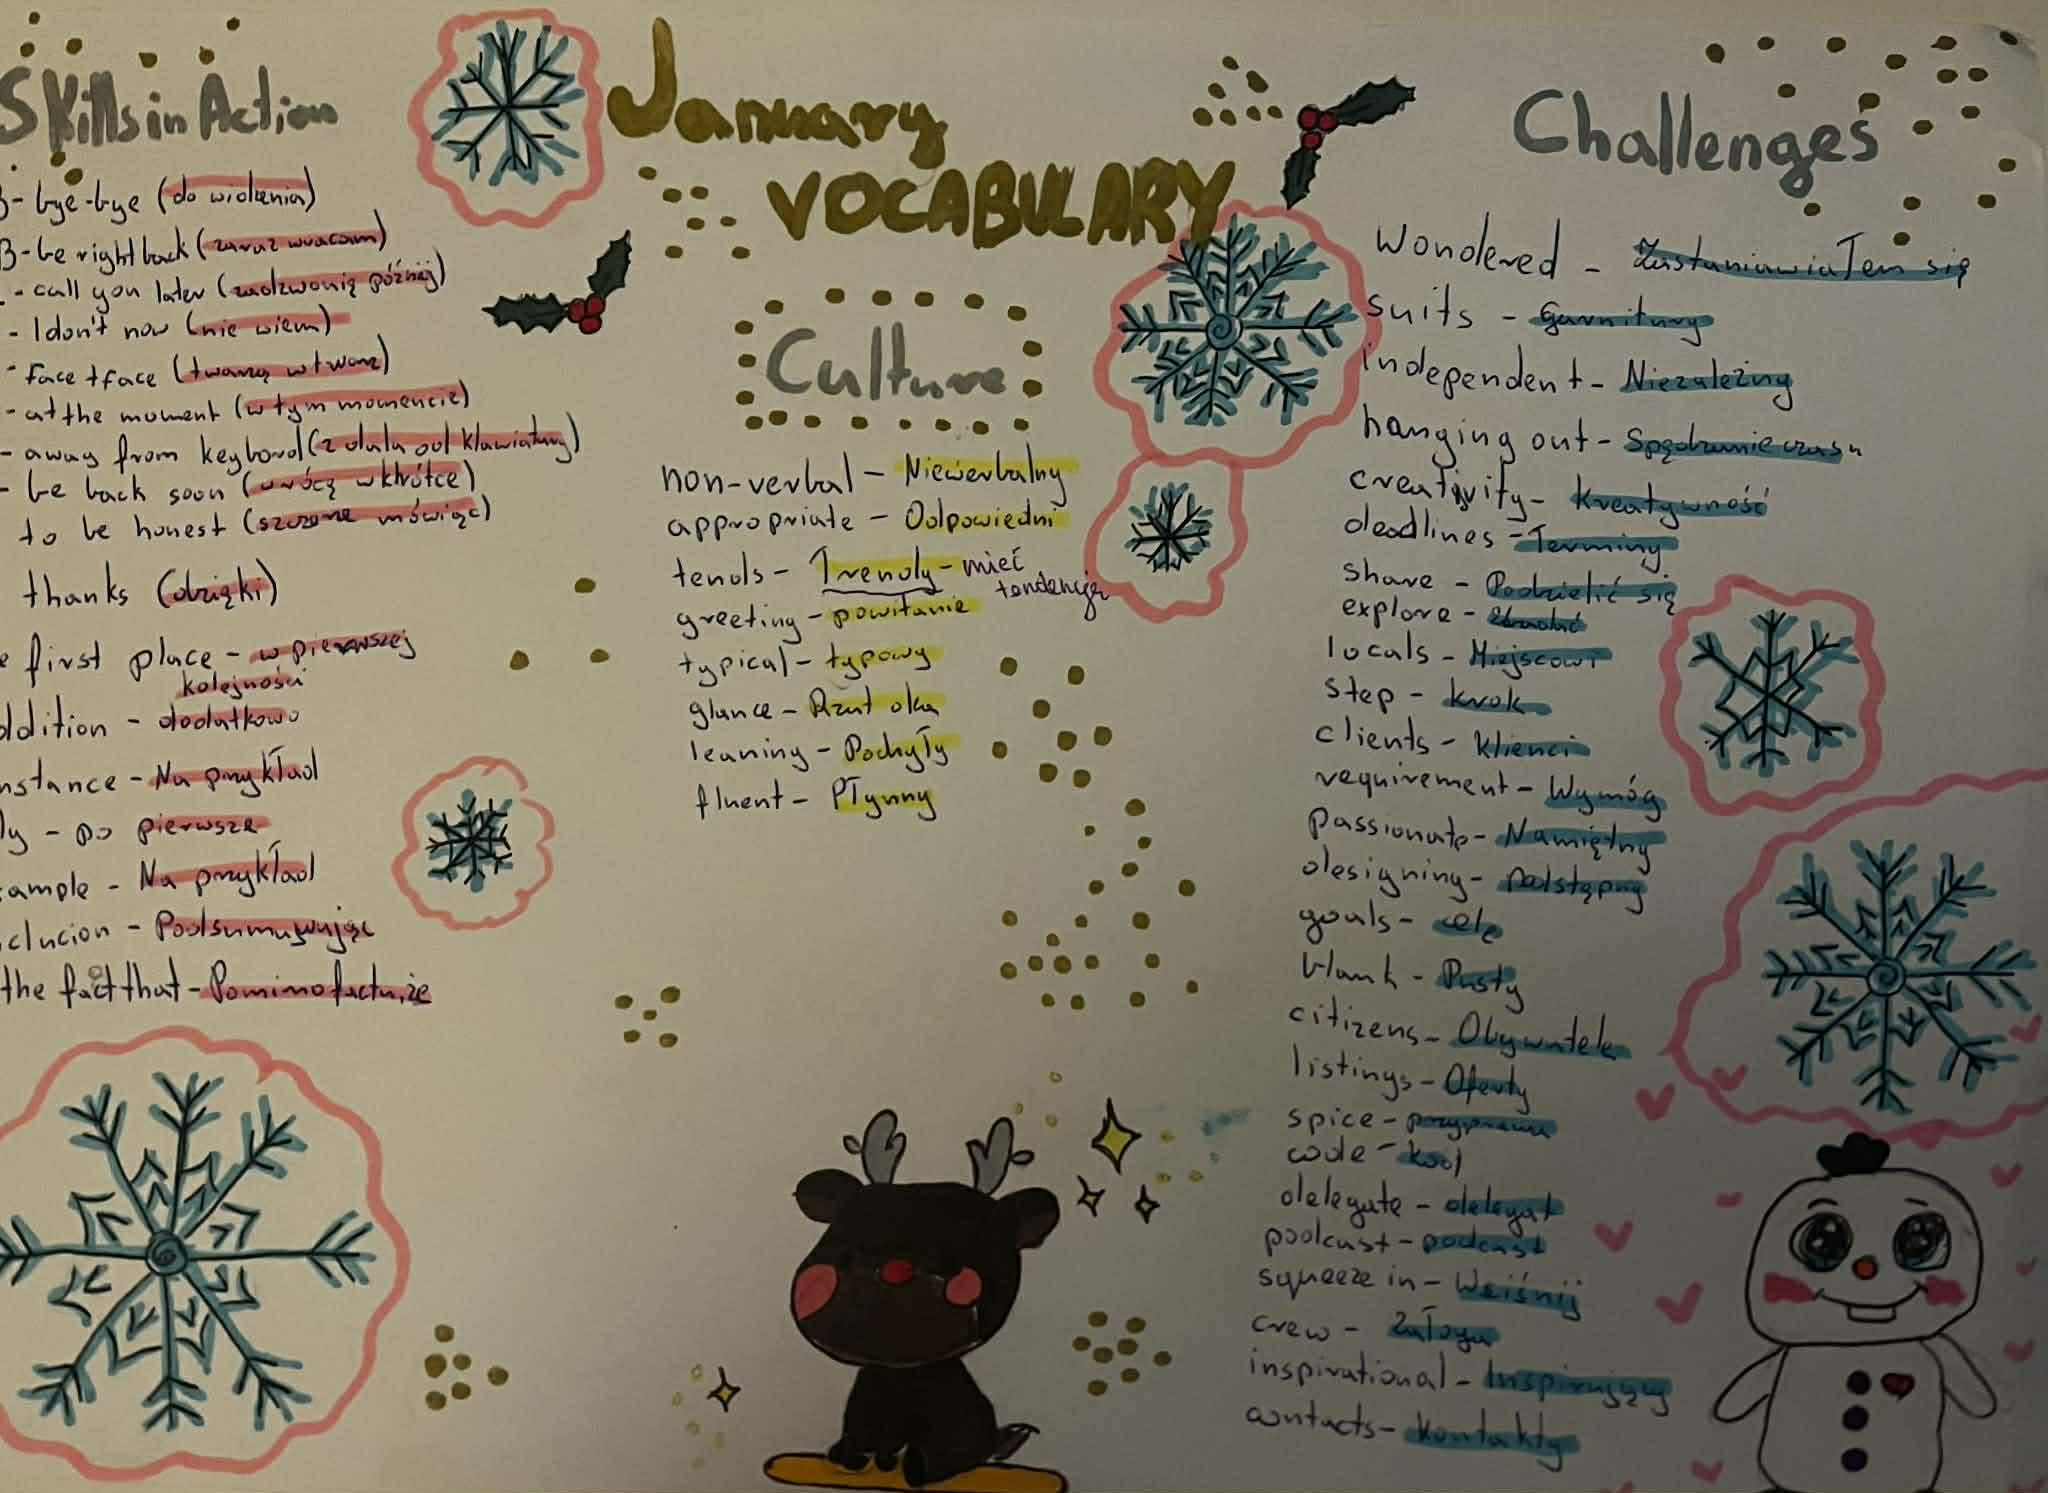 Skills in Action
B - bye-bye (do widzenia)
B - be right back (zaraz wracam)
- call you later (zadzwonię później)
- I don't now (nie wiem)
- face t face (twarzą w twarz)
- at the moment (w tym momencie)
- away from keybord (z dala od klawiatury)
- be back soon (wrócę wkrótce)
to be honest (szczerze mówiąc)
thanks (dzięki)
e first place - w pierwszej
kolejności
ddition - dodatkowo
nstance - Na przykład
ly - po pierwsze
ample - Na przykład
clucion - Podsumowując
the fact that - Pomimo factu, że
January
VOCABULARY
Culture
non-verbal - Niewerbalny
appropriate - Odpowiedni
tends - Trendy - mieć
tendencje
greeting - powitanie
typical - typowy
glance - Rzut oka
leaning - Pochyły
fluent - Płynny
Challenges
wondered - Zastanawiałem się
suits - garnitury
independent - Niezależny
hanging out - Spędzanie czasu
creativity - Kreatywność
deadlines - Terminy
share - Podzielić się
explore -
locals - Miejscowi
step - krok
clients - Klienci
requirement - Wymóg
passionate - Namiętny
designing - podstępny
goals - cele
blank - Pusty
citizens - Obywatele
listings - Oferty
spice - przyprawa
code - kod
delegate - delegat
podcast - podcast
squeeze in - Wciśnij
crew - Załoga
inspirational - Inspirujący
contacts - kontakty